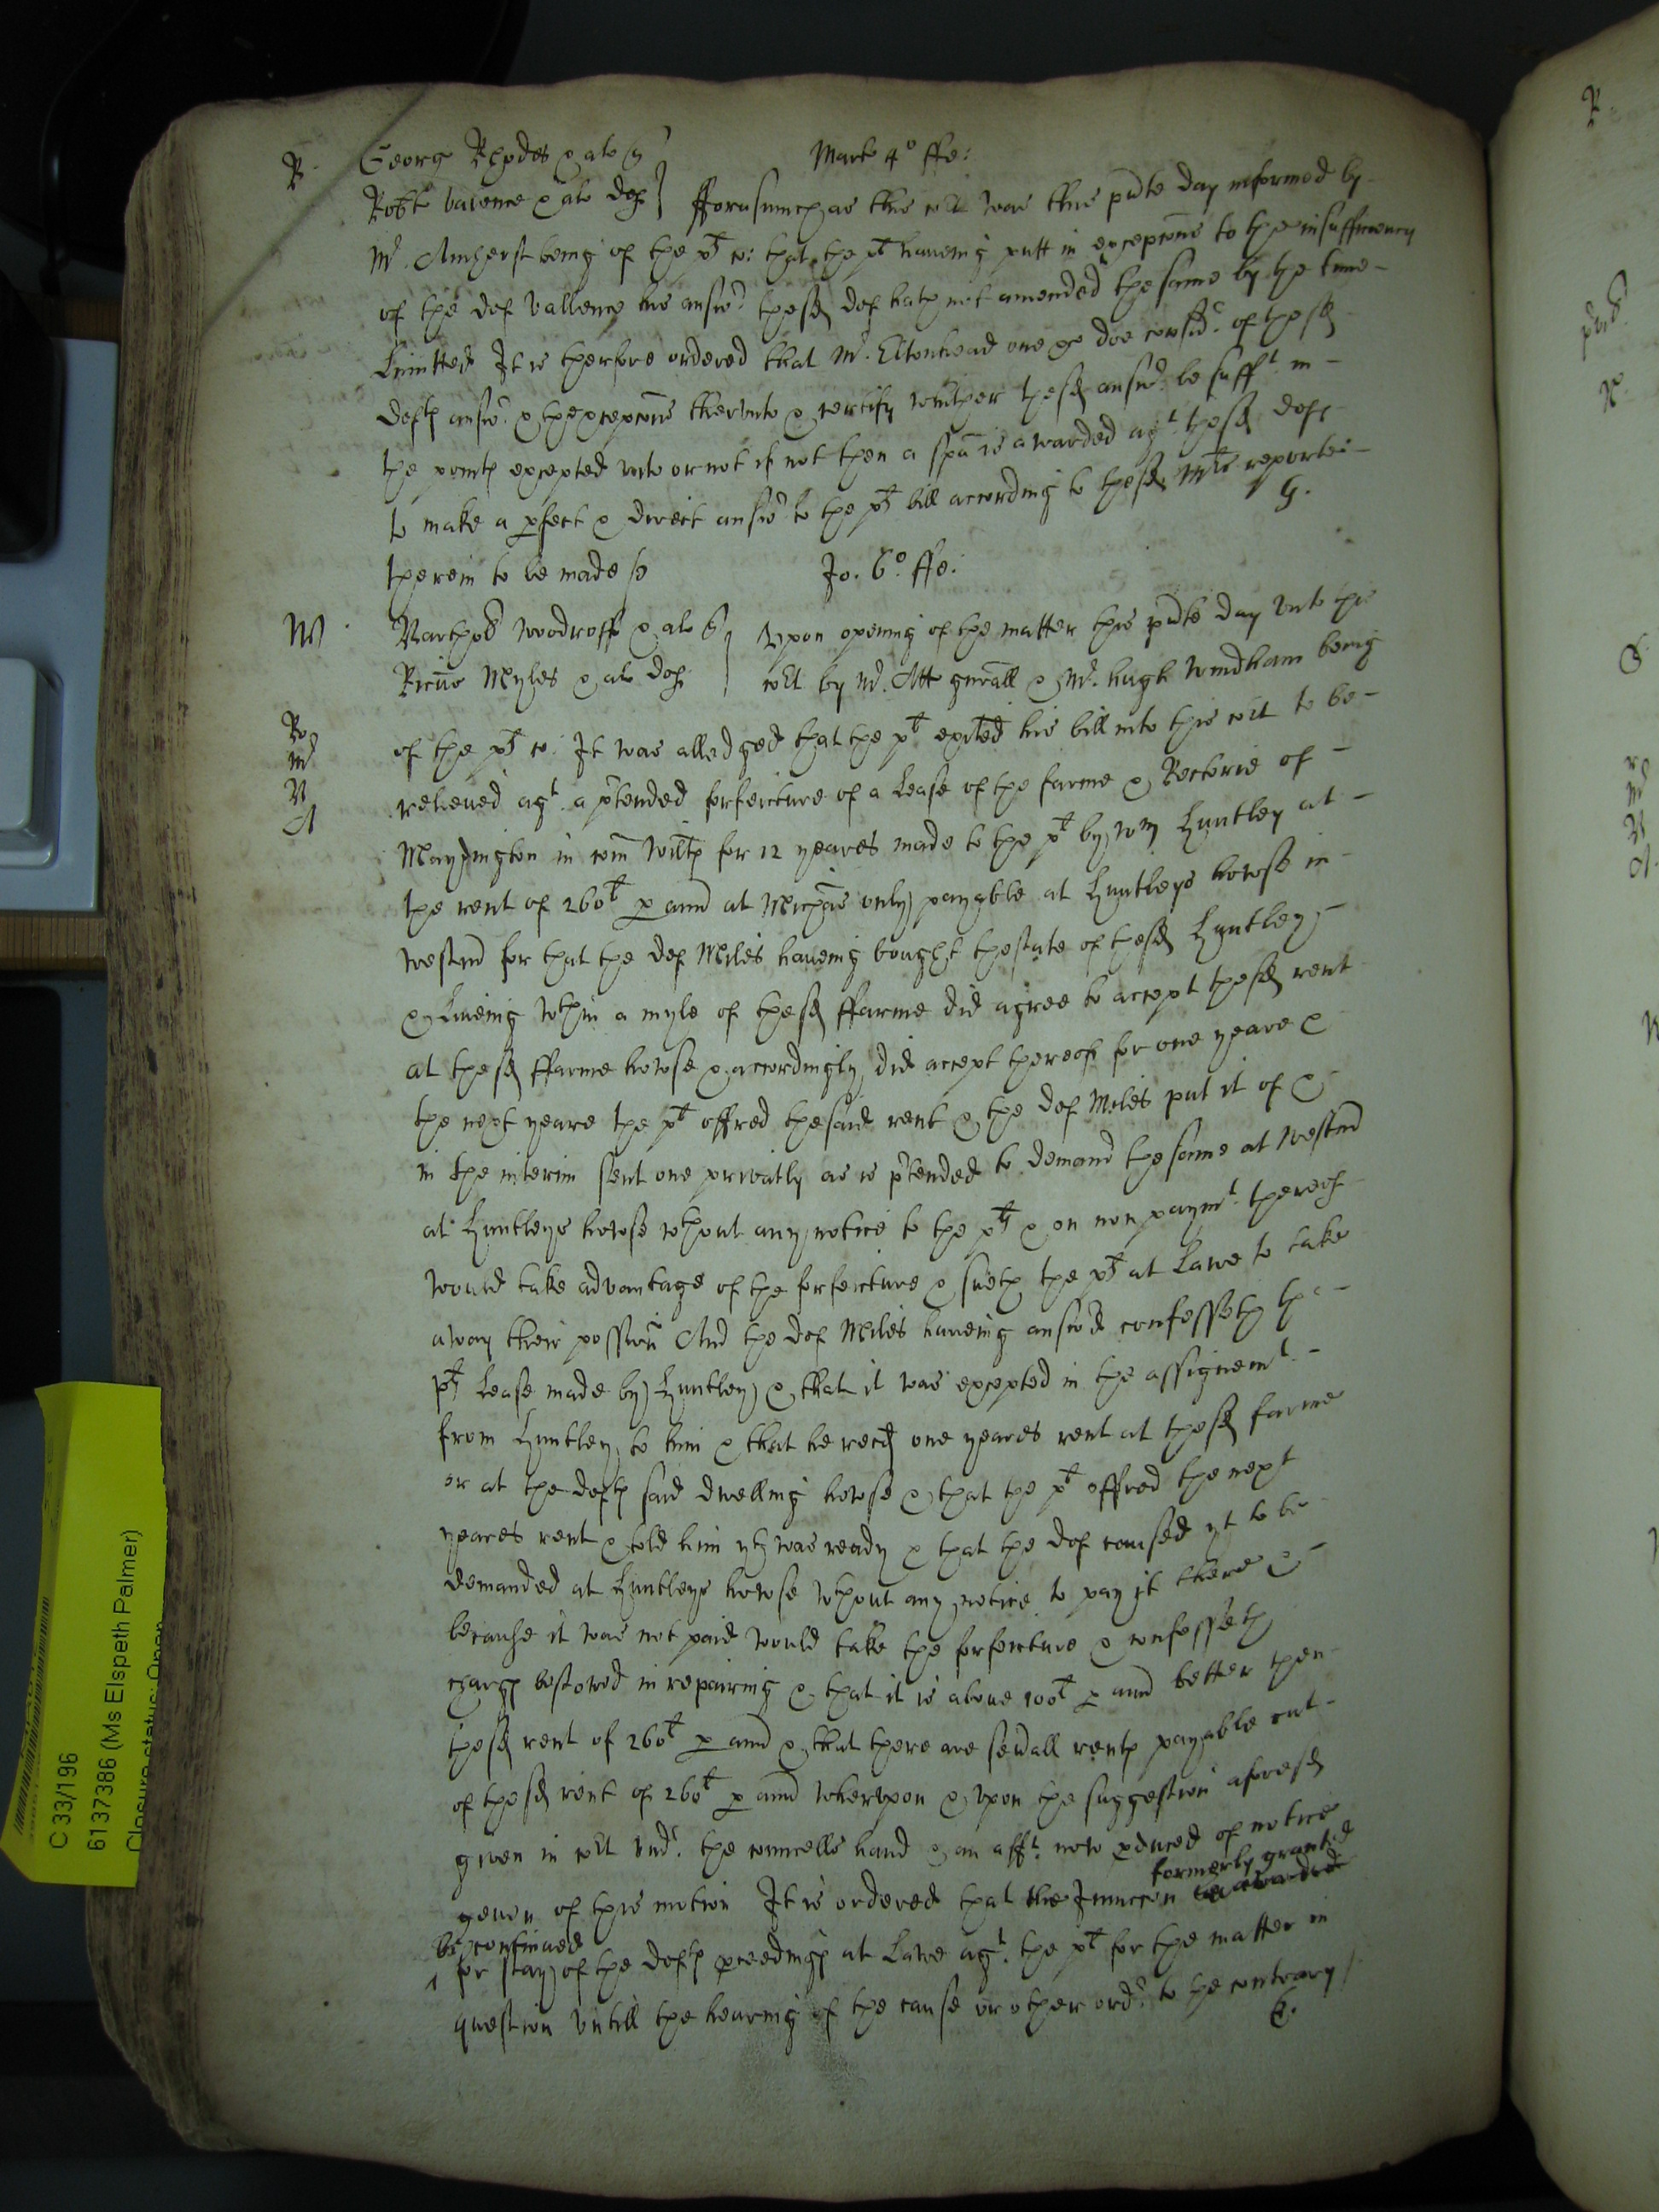 R George Rhodes & al plts Marti 4o ffe:
Robte valence & al defts fforasmuch as this Cort was this pñte day informed by
Mr. Amherst being of the plts co: that the plt haveing putt in excepcons to the insufficiency
of the def Vallence his answr the sd def hath not amended the same by the time
limitted It is therfore ordered that Mr. Eltonhead one &c doe considr of the sd
defts answr & the excepcons therunto & certify whether the sd answr be sufft in
the points excepted unto or not if not then a spã is awarded agt the sd deft
to make a pfect & direct answr to the plts bill according to the sd Mrs reporte
therein to be made G.
Jo. 6o ffe:
W Woodroff & al plts Upon opening of the matter this pñte day unto this
Ricũs Myles & al defts Cort by Mr. Att genrall & Mr. hugh Windham being
of the plts co: It was alledged that the plt exhited his bill into this Cort to be
releived agt. a ptended forfeiture of a Lease of the farme & Rectorie of
in com Wilts for 12 yeares made to the plt by Wm Huntley at
the rent of 260l p annũ at Michas only payable at Huntleys howse in
Westmr for that the def Miles haveing bought thestate of the sd Huntley
& Liveing wthin a myle of the sd ffarme did agree to accept the sd rent
at the sd ffarme howse & accordingly did accept thereof for one yeare &
the next yeare the plt offred the said rent & the def Miles put it of &
in the interim sent one privatly as is ptended to demand the same at Westmr
at Huntleys howse wthout any notice to the plt & on non paymt. thereof
would take advantage of the forfeiture & sueth the plt at Lawe to take
away their possion And the def Miles haveing answd confesseth the
plts Lease made by Huntley & that it was excepted in the assignemt.
from Huntley to him & that he recd one yeares rent at the sd farme
or at the defts said dwelling howse & that the plt offred the next
yeares rent & told him yt was ready & that the def caused yt to be
demanded at Huntleys howse wthout any notice to pay it there &
because it was not paid would take the forfeiture & confesseth
charges bestowed in repairing & that it is above 100l p annũ better then
the sd rent of 260l p annũ & that there are sevall rents payable out
of the sd rent of 260l p annũ wherupon & upon the suggestion aforesd
given in Cort undr. the councells hand & an afft. now pduced of notice
geven of this motion It is ordered that the Iniunccon formerly granted
be continued
for stay of the defts pceedings at Lawe agt. the plt for the matter in
question untill the hearing of the cause or other ordr. to the contrary
C 33/196
6137386 (Ms Elspeth Palmer)
Closure status: Open